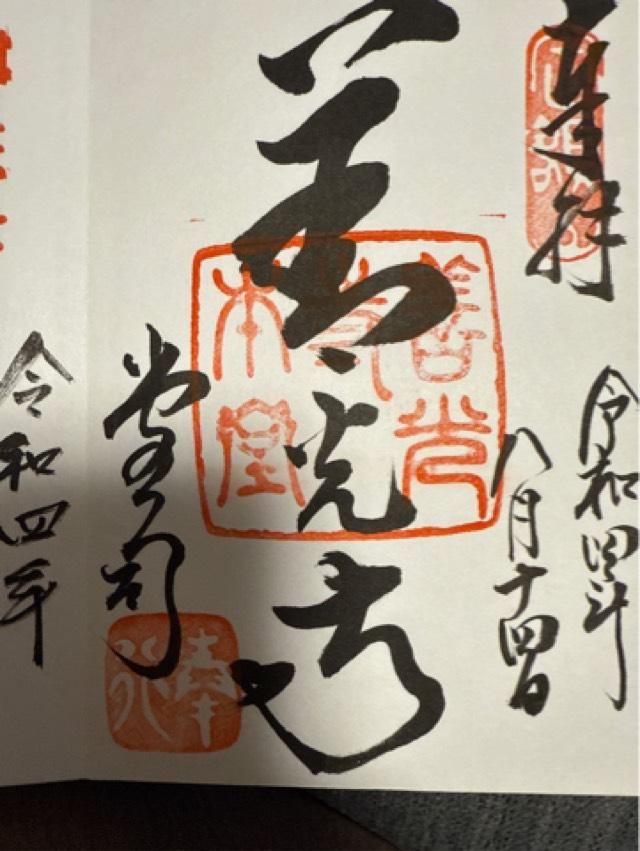 奉拝
令和四年
八月十四日
善光寺
善光寺本堂
堂司
奉行
令和四年